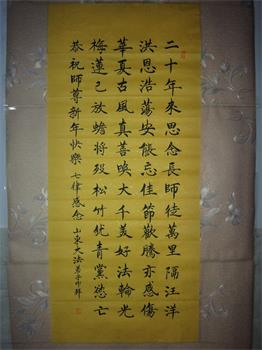 二十年來思念長師徒萬里隔汪洋
洪恩浩蕩安能忘佳節歡騰亦感傷
華夏古風真善喚大千美好法輪光
梅蓮已放蟾将殁松竹优青黨亡
恭祝師尊新年快樂 七律感念 山東大法弟子叩拜